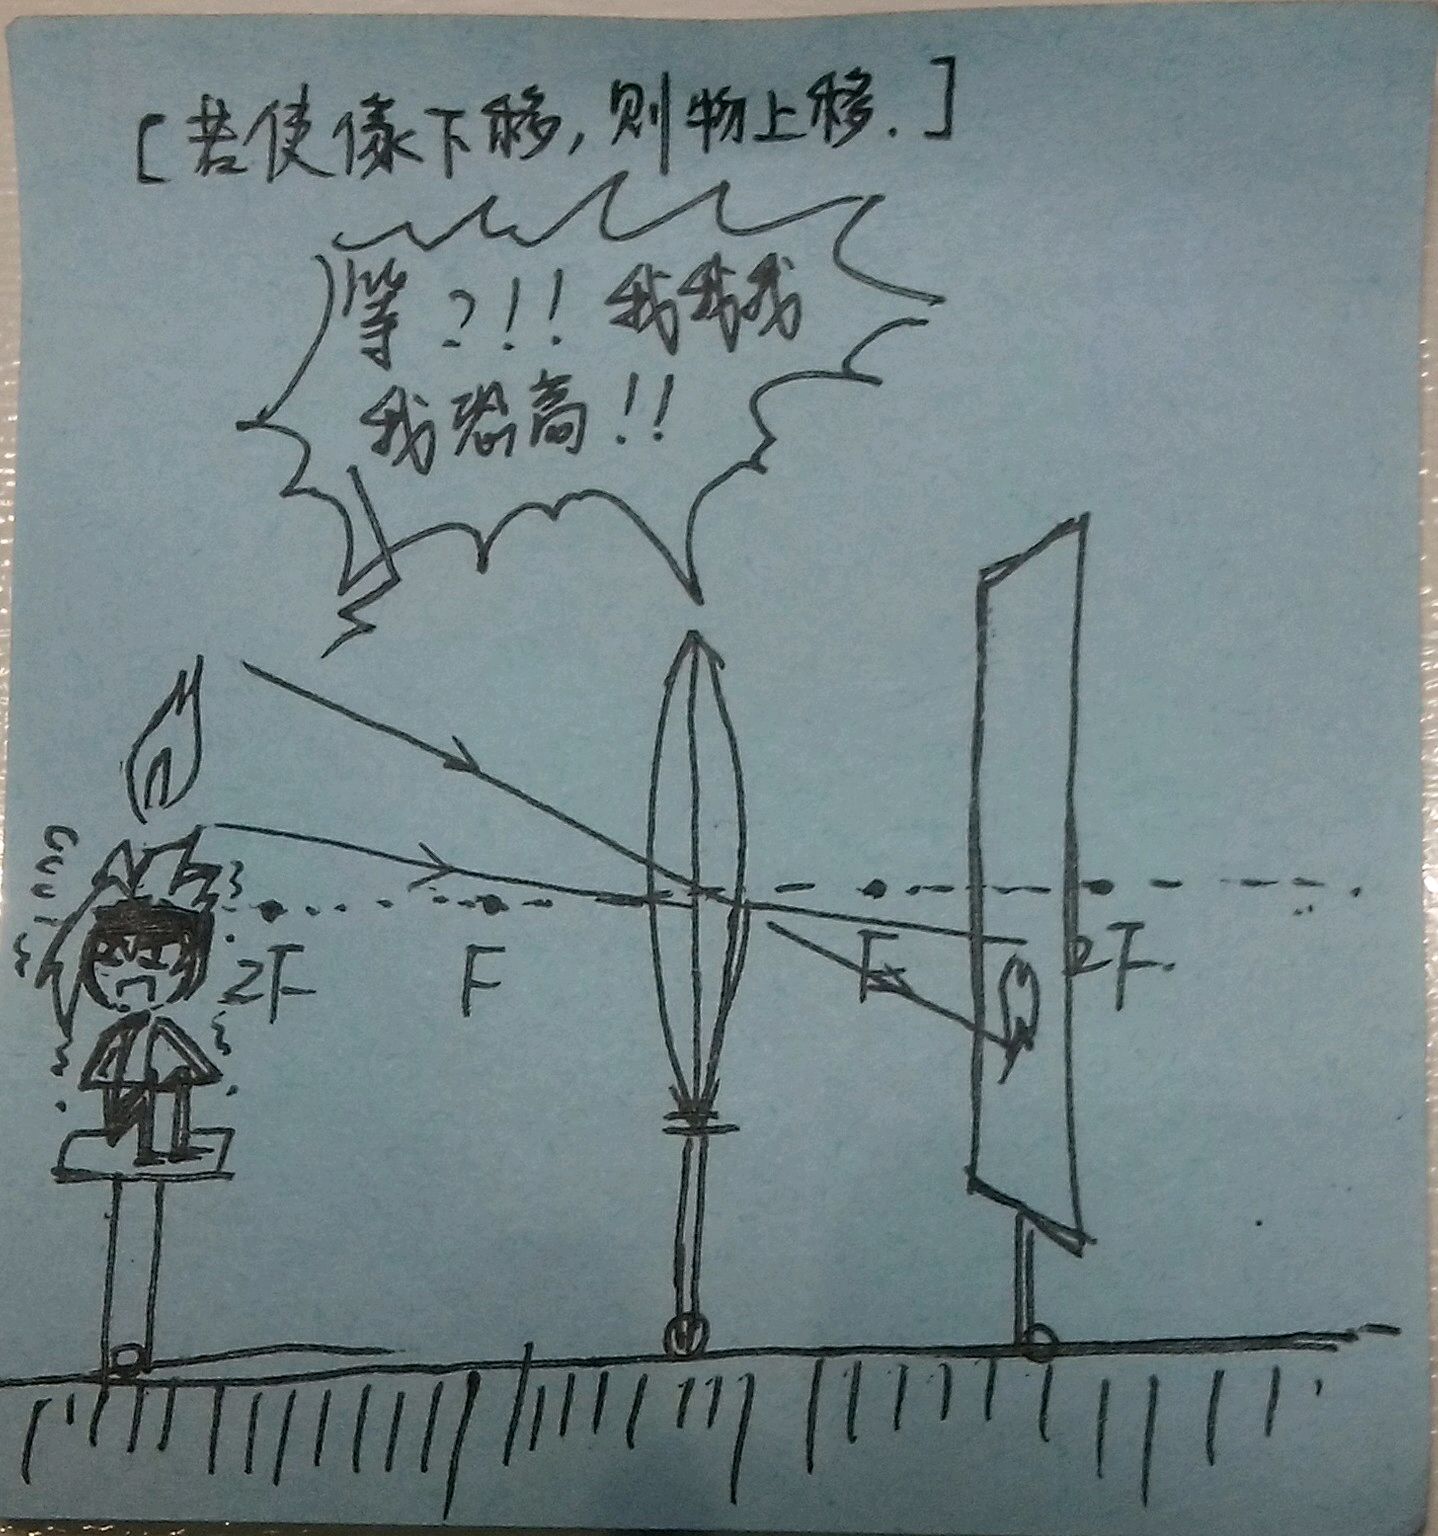 [若使像下移,则物上移.]
等?!!我我我
我恐高!!
2F
F
F
2F